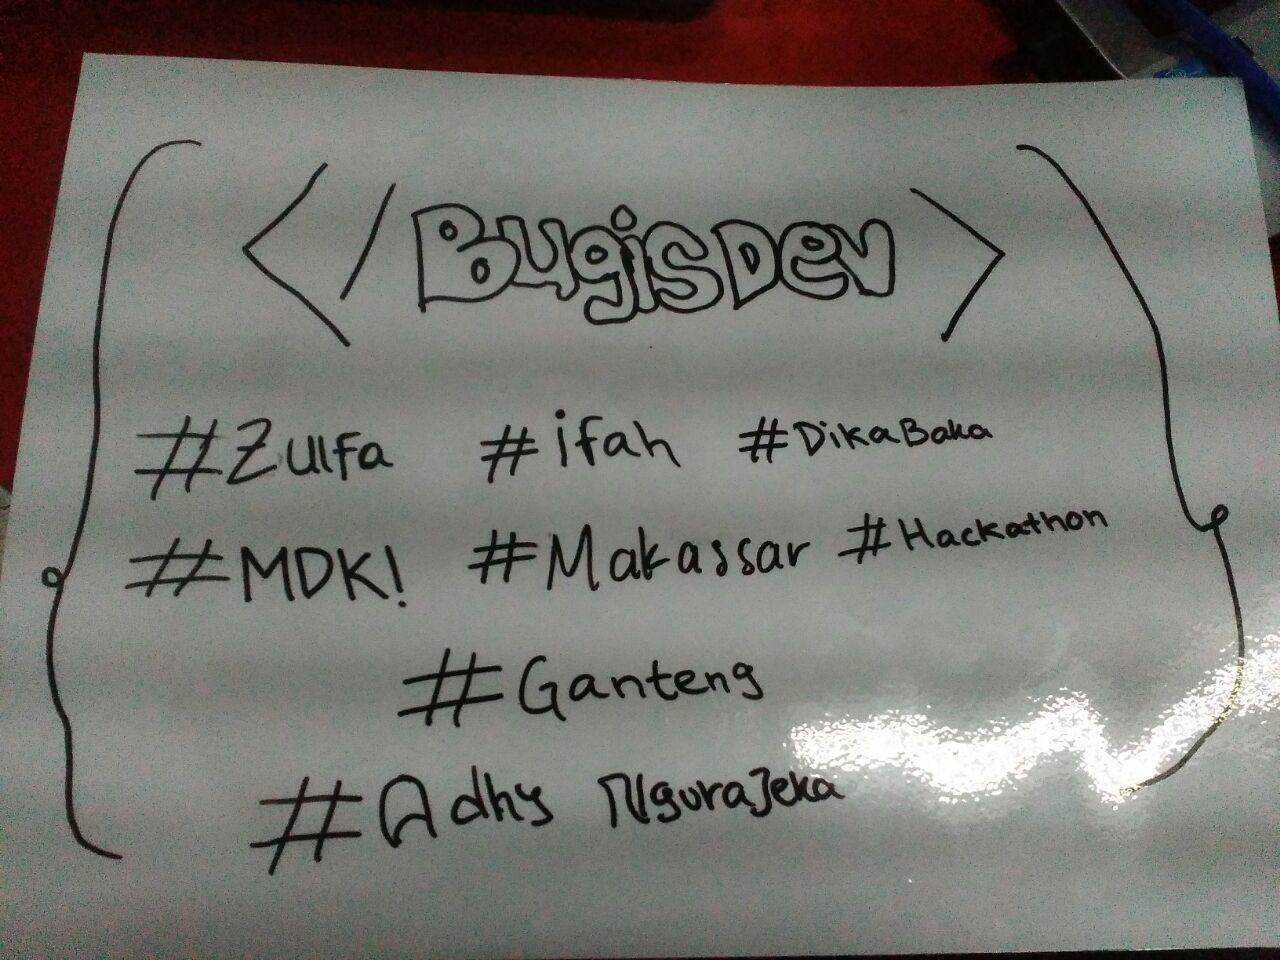 </BugisDev>
#Zulfa #ifah #DikaBaka
#MDK! #Makassar #Hackathon
#Ganteng
#Adhy NguraJeka